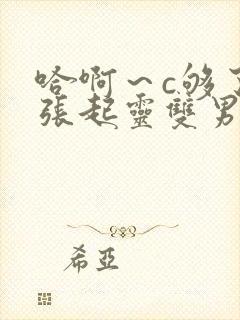 哈啊～c够了
張起靈雙男
希亞